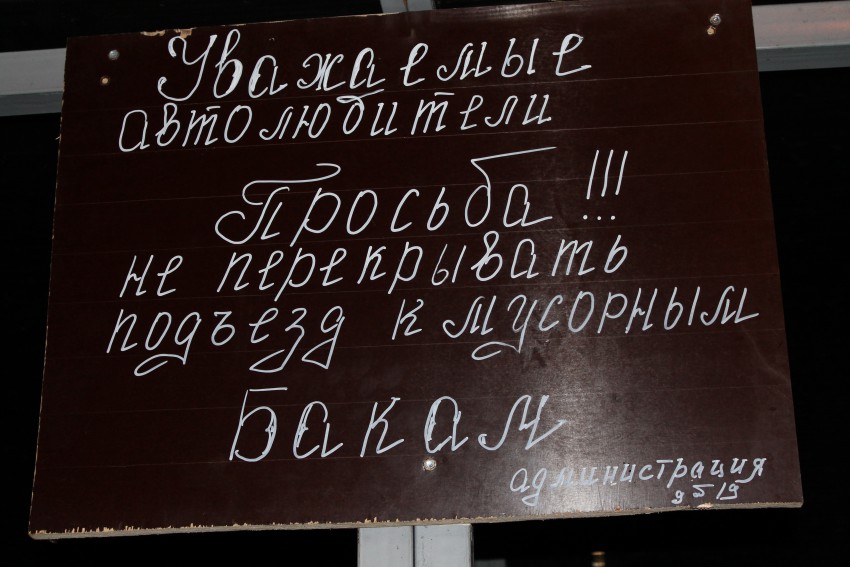 Уважаемые
автолюбители
Просьба!!!
не перекрывать
подъезд к мусорным
Бакам
администрация